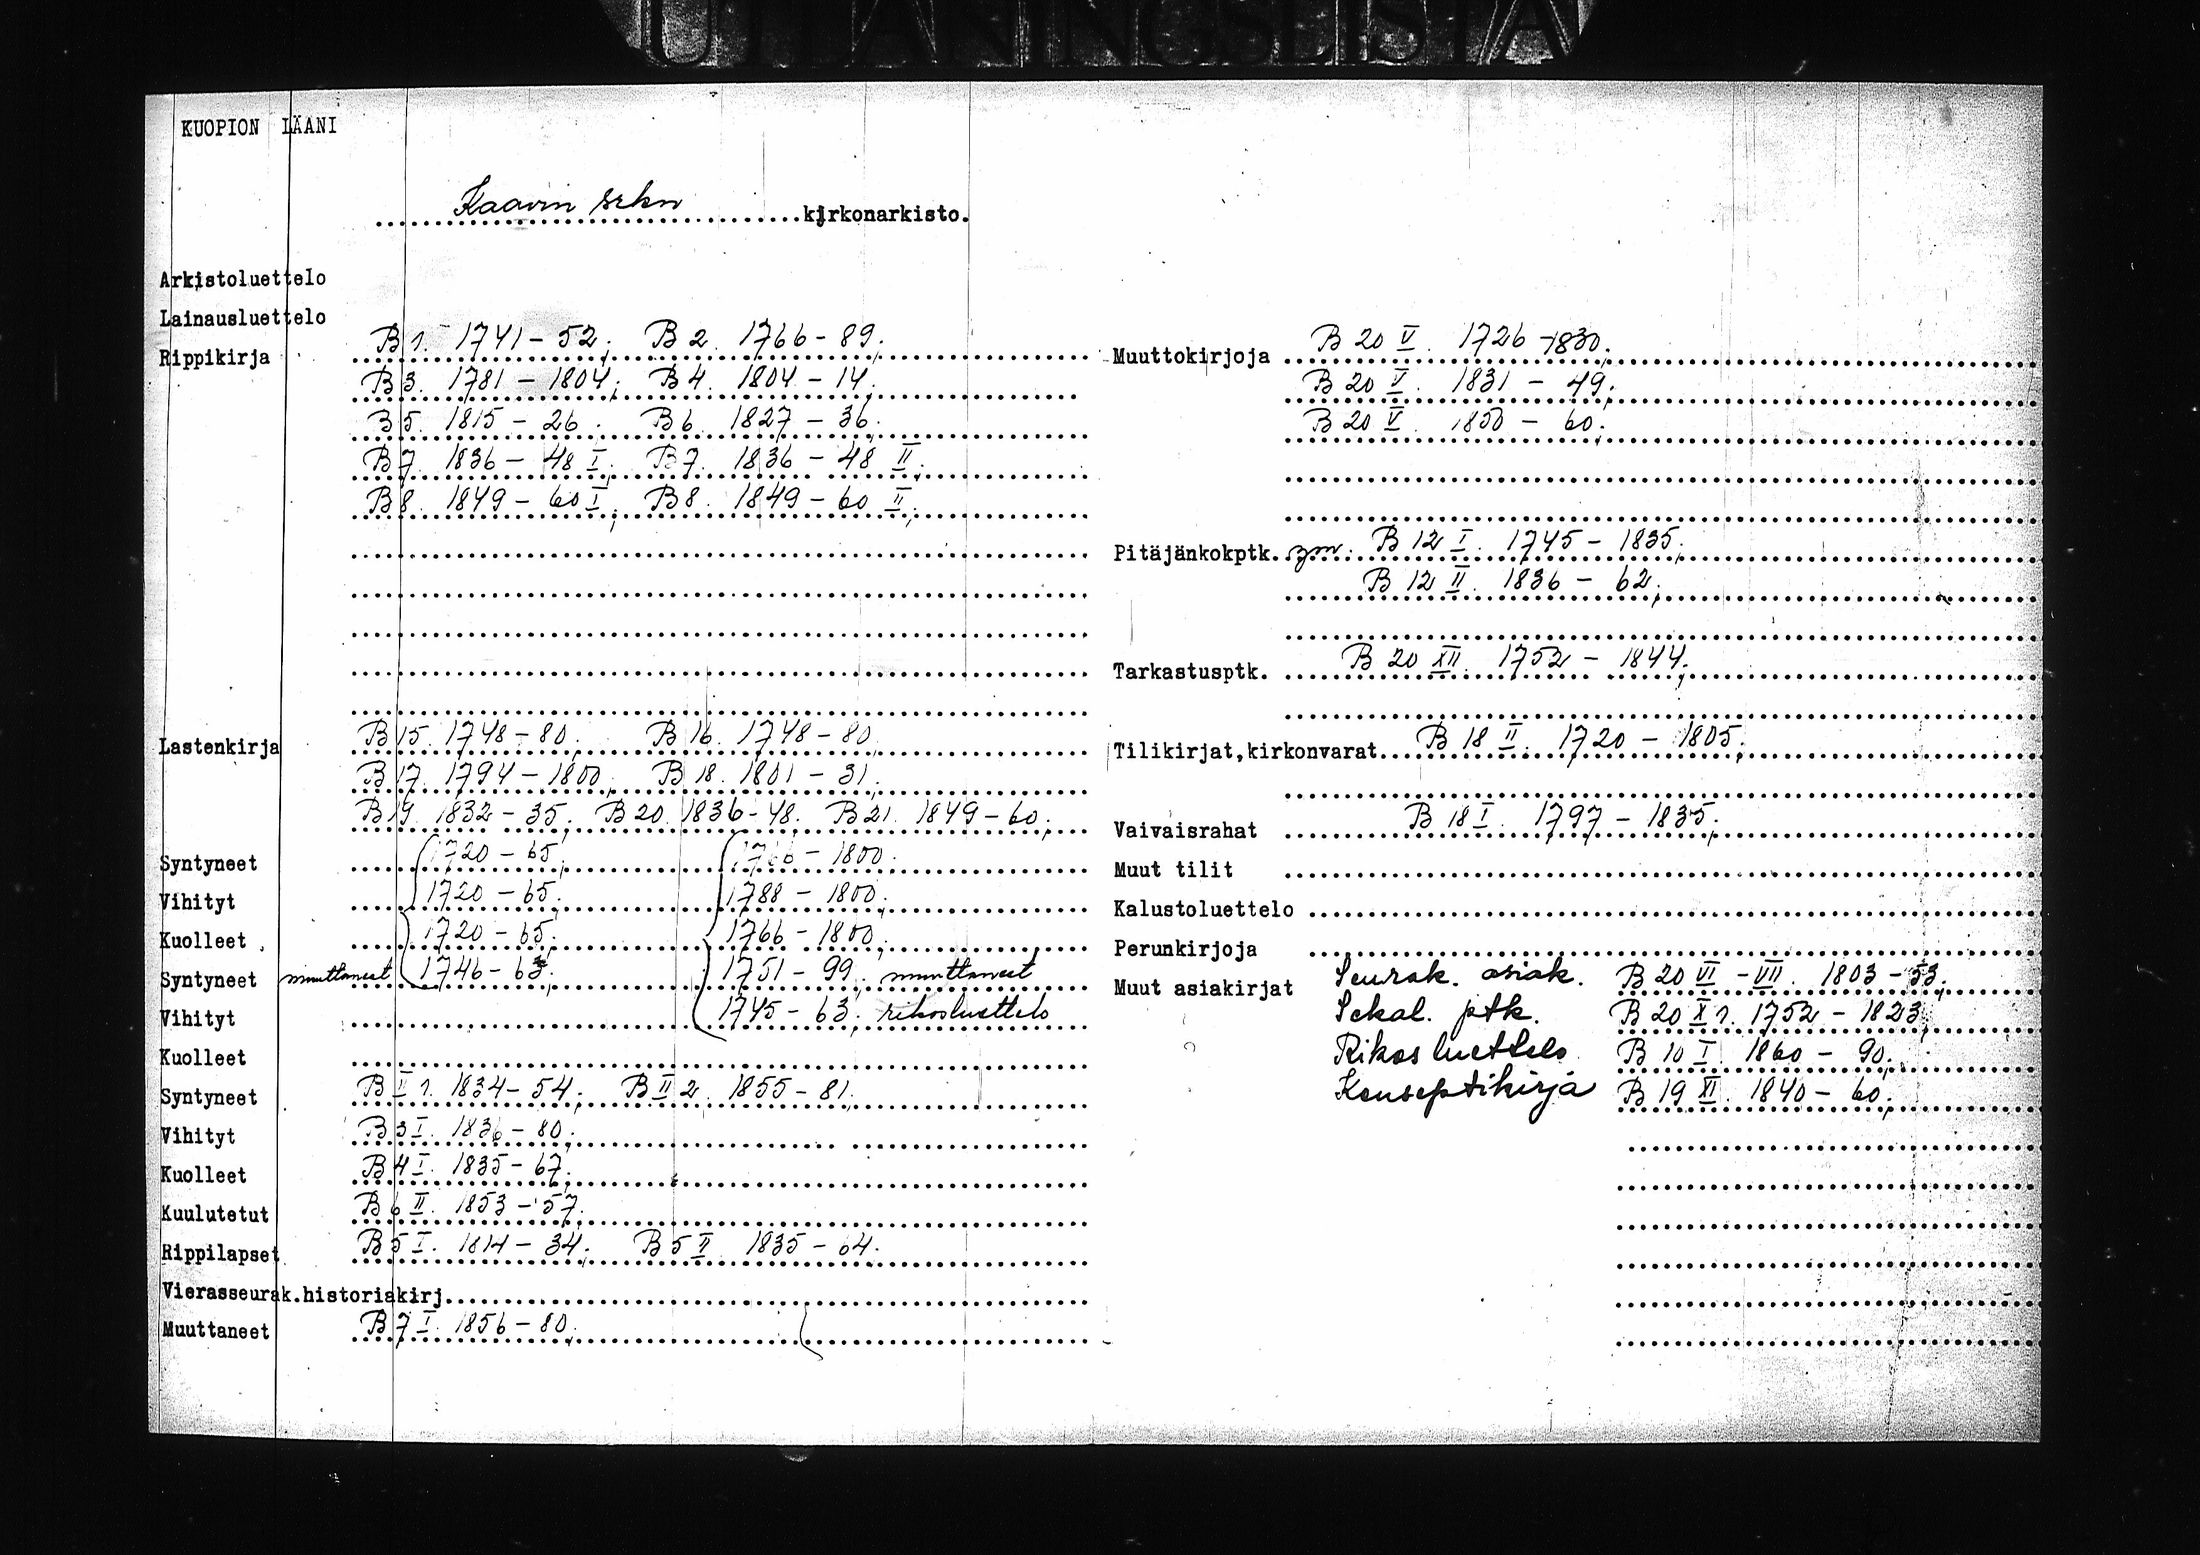 UTLÅNINGSLISTA
KUOPION LÄÄNI
Kaavin srkn kirkonarkisto.
Arkistoluettelo
Lainausluettelo
Rippikirja B 1. 1741 - 52; B 2. 1766 - 89;
B 3. 1781 - 1804; B 4. 1804 - 14;
B 5. 1815 - 26. B 6. 1827 - 36;
B 7. 1836 - 48 I; B 7. 1836 - 48 II;
B 8. 1849 - 60 I; B 8. 1849 - 60 II;
Lastenkirja B 15. 1748 - 80; B 16. 1748 - 80;
B 17. 1794 - 1800; B 18. 1801 - 31;
B 19. 1832 - 35; B 20. 1836 - 48. B 21. 1849 - 60;
Syntyneet 1720 - 65; 1766 - 1800.
Vihityt 1720 - 65; 1788 - 1800;
Kuolleet 1720 - 65; 1766 - 1800;
Syntyneet muuttaneet 1746 - 63; 1751 - 99; muuttaneet
Vihityt 1745 - 63; rikosluettelo
Kuolleet
Syntyneet B II 1. 1834 - 54; B II 2. 1855 - 81.
Vihityt B 3 I. 1836 - 80;
Kuolleet B 4 I. 1835 - 67;
Kuulutetut B 6 II. 1853 - 57.
Rippilapset B 5 I. 1814 - 34; B 5 II 1835 - 64.
Vierasseurak.historiakirj.
Muuttaneet B 7 I. 1856 - 80.
Muuttokirjoja B 20 V. 1726 - 1830;
B 20 V. 1831 - 49;
B 20 V. 1850 - 60;
Pitäjänkokptk. ym. B 12 I. 1745 - 1835;
B 12 II. 1836 - 62;
Tarkastusptk. B 20 XII. 1752 - 1844;
Tilikirjat,kirkonvarat B 18 II. 1720 - 1805;
Vaivaisrahat B 18 I. 1797 - 1835;
Muut tilit
Kalustoluettelo
Perunkirjoja
Muut asiakirjat Seurak. asiak. B 20 VI - VII. 1803 - 53;
Sekal. ptk. B 20 X 1. 1752 - 1823;
Rikosluettelo B 10 I. 1860 - 90;
Konseptikirja B 19 XI. 1840 - 60;